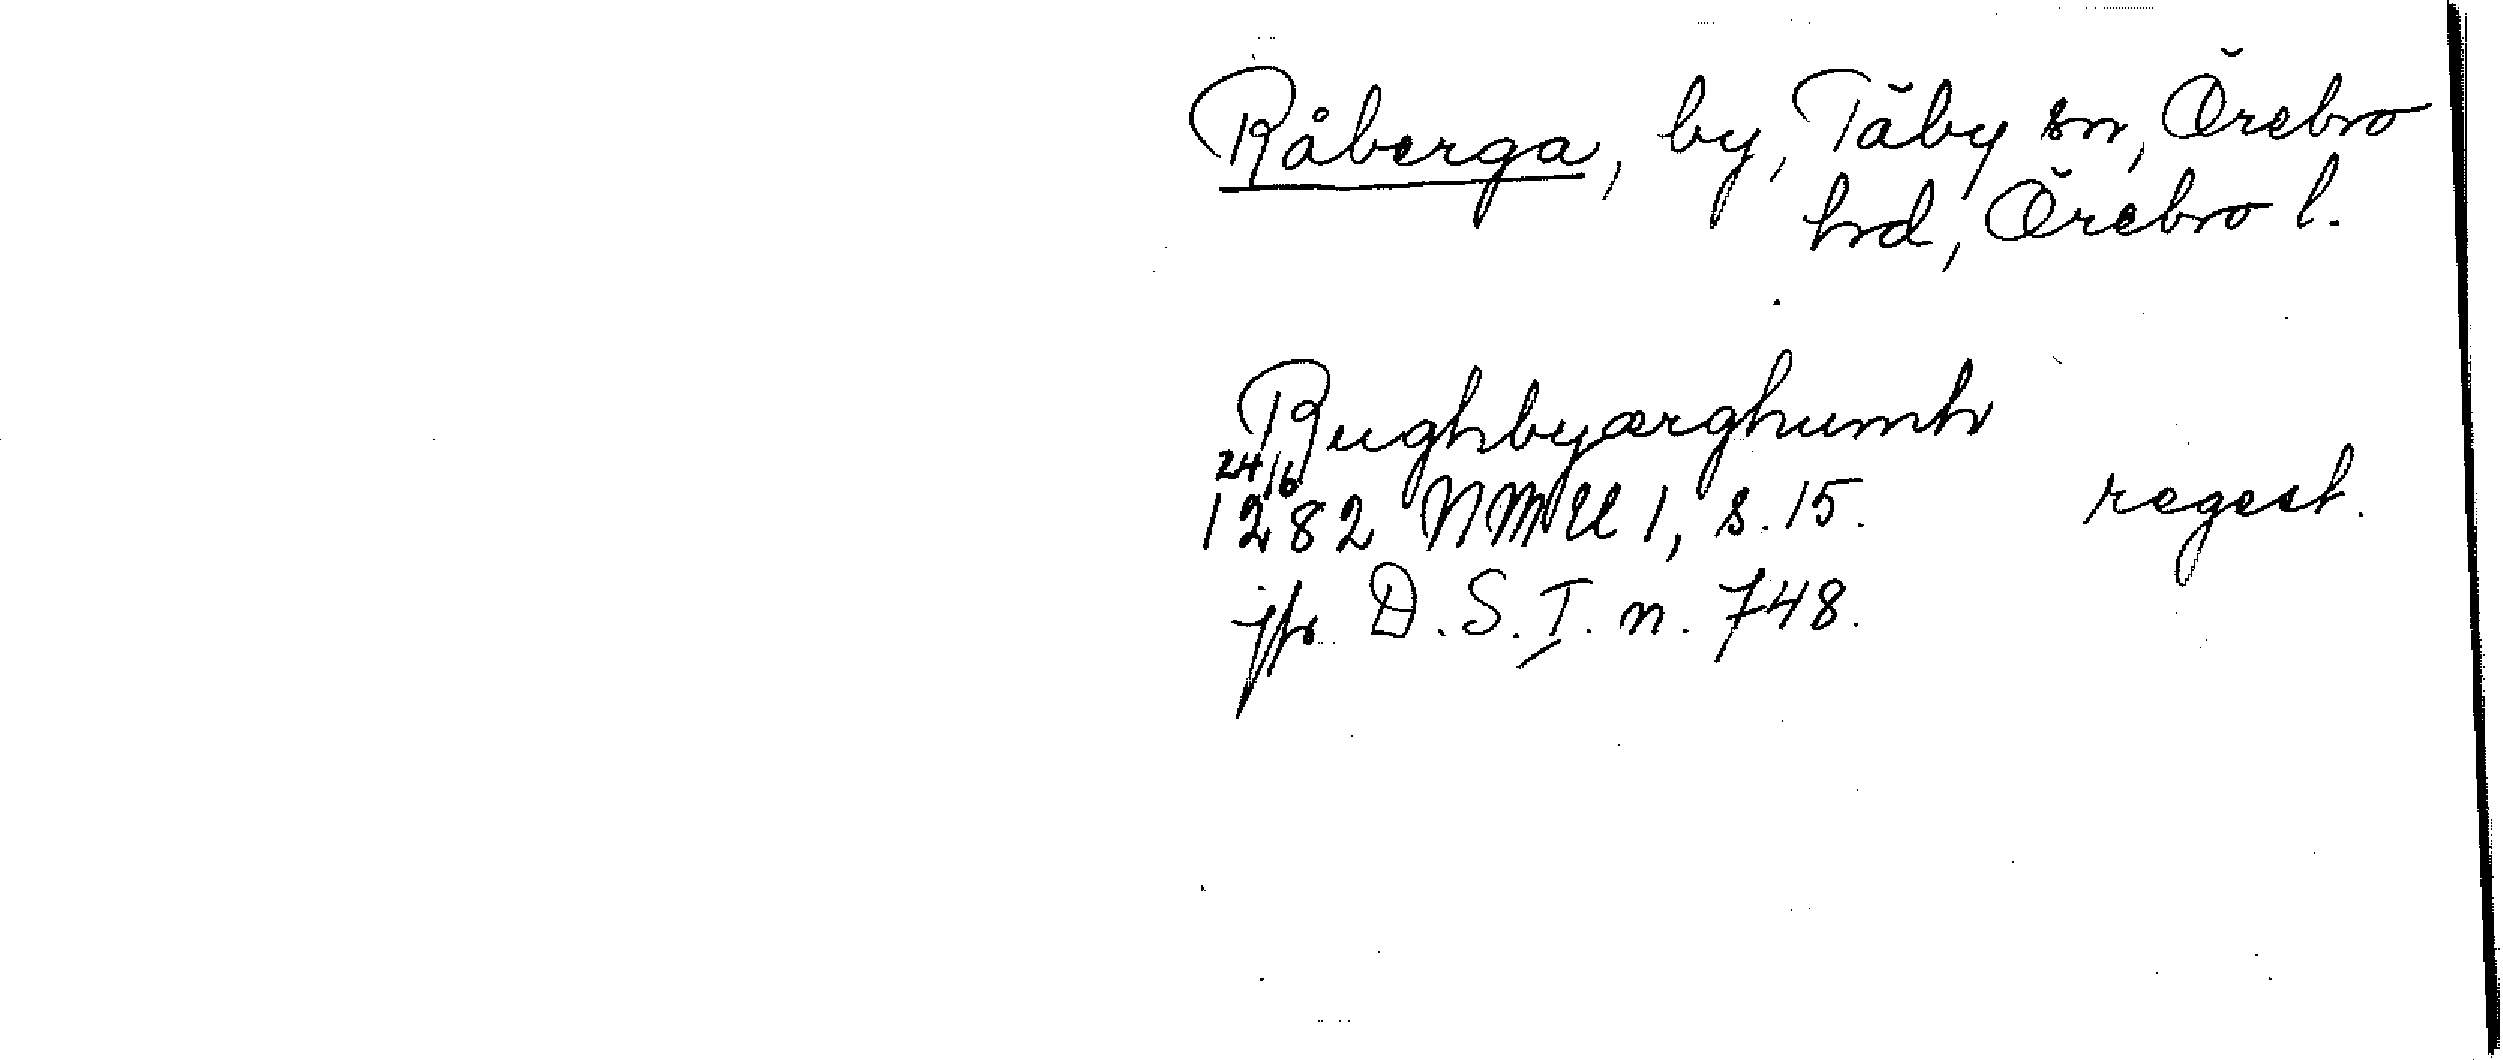 Råberga, by, Täby sn, Örebro
hrd, Örebro l.
Rughbyærghumh
24/6
1282 NMU 1, s. 15. regest.
jfr D.S.I. n. 748.